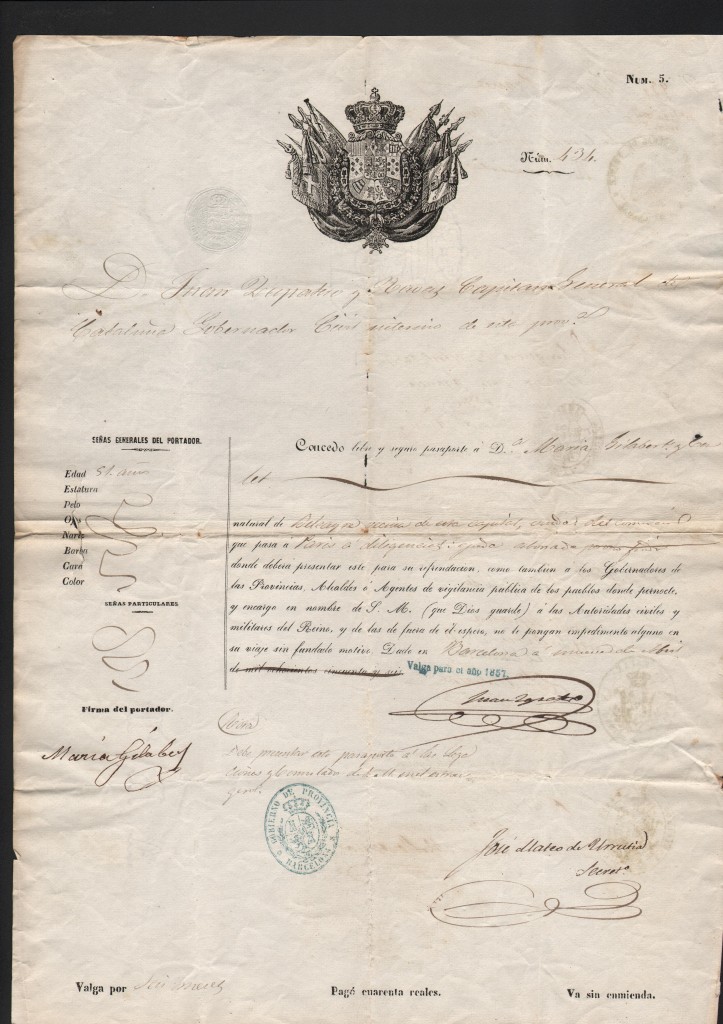 NUM. 5.
Núm. 434.
D. Juan Zapatero y Navas Capitan General de
Cataluña Gobernador Civil interino de esta prov.ª
SEÑAS GENERALES DEL PORTADOR.
Edad 51 años
Estatura
Pelo
Ojos
Nariz
Barba
Cara
Color
SEÑAS PARTICULARES.
Firma del portador.
María Gilabert
Concedo libre y seguro pasaporte á D.ª María Gilabert y
let
natural de vecina de esta capital,
que pasa á Paris
donde deberá presentar este para su refrendacion, como tambien á los Gobernadores de
las Provincias, Alcaldes ó Agentes de vigilancia pública de los pueblos donde pernocte,
y encargo en nombre de S. M. (que Dios guarde) á las Autoridades civiles y
militares del Reino, y de las de fuera de él espero, no le pongan impedimento alguno en
su viaje sin fundado motivo. Dado en Barcelona á nueve de Abril
de mil ochocientos cincuenta y seis
Valga para el año 1857.
Juan Zapatero
Nota
Debe presentar este pasaporte á las Lega
ciones y Consulados de S. M. en el estran
gero.
GOBIERNO DE PROVINCIA
BARCELONA
José Mateo de Urrutia
Secret.º
Valga por Seis meses
Pagó cuarenta reales.
Va sin enmienda.